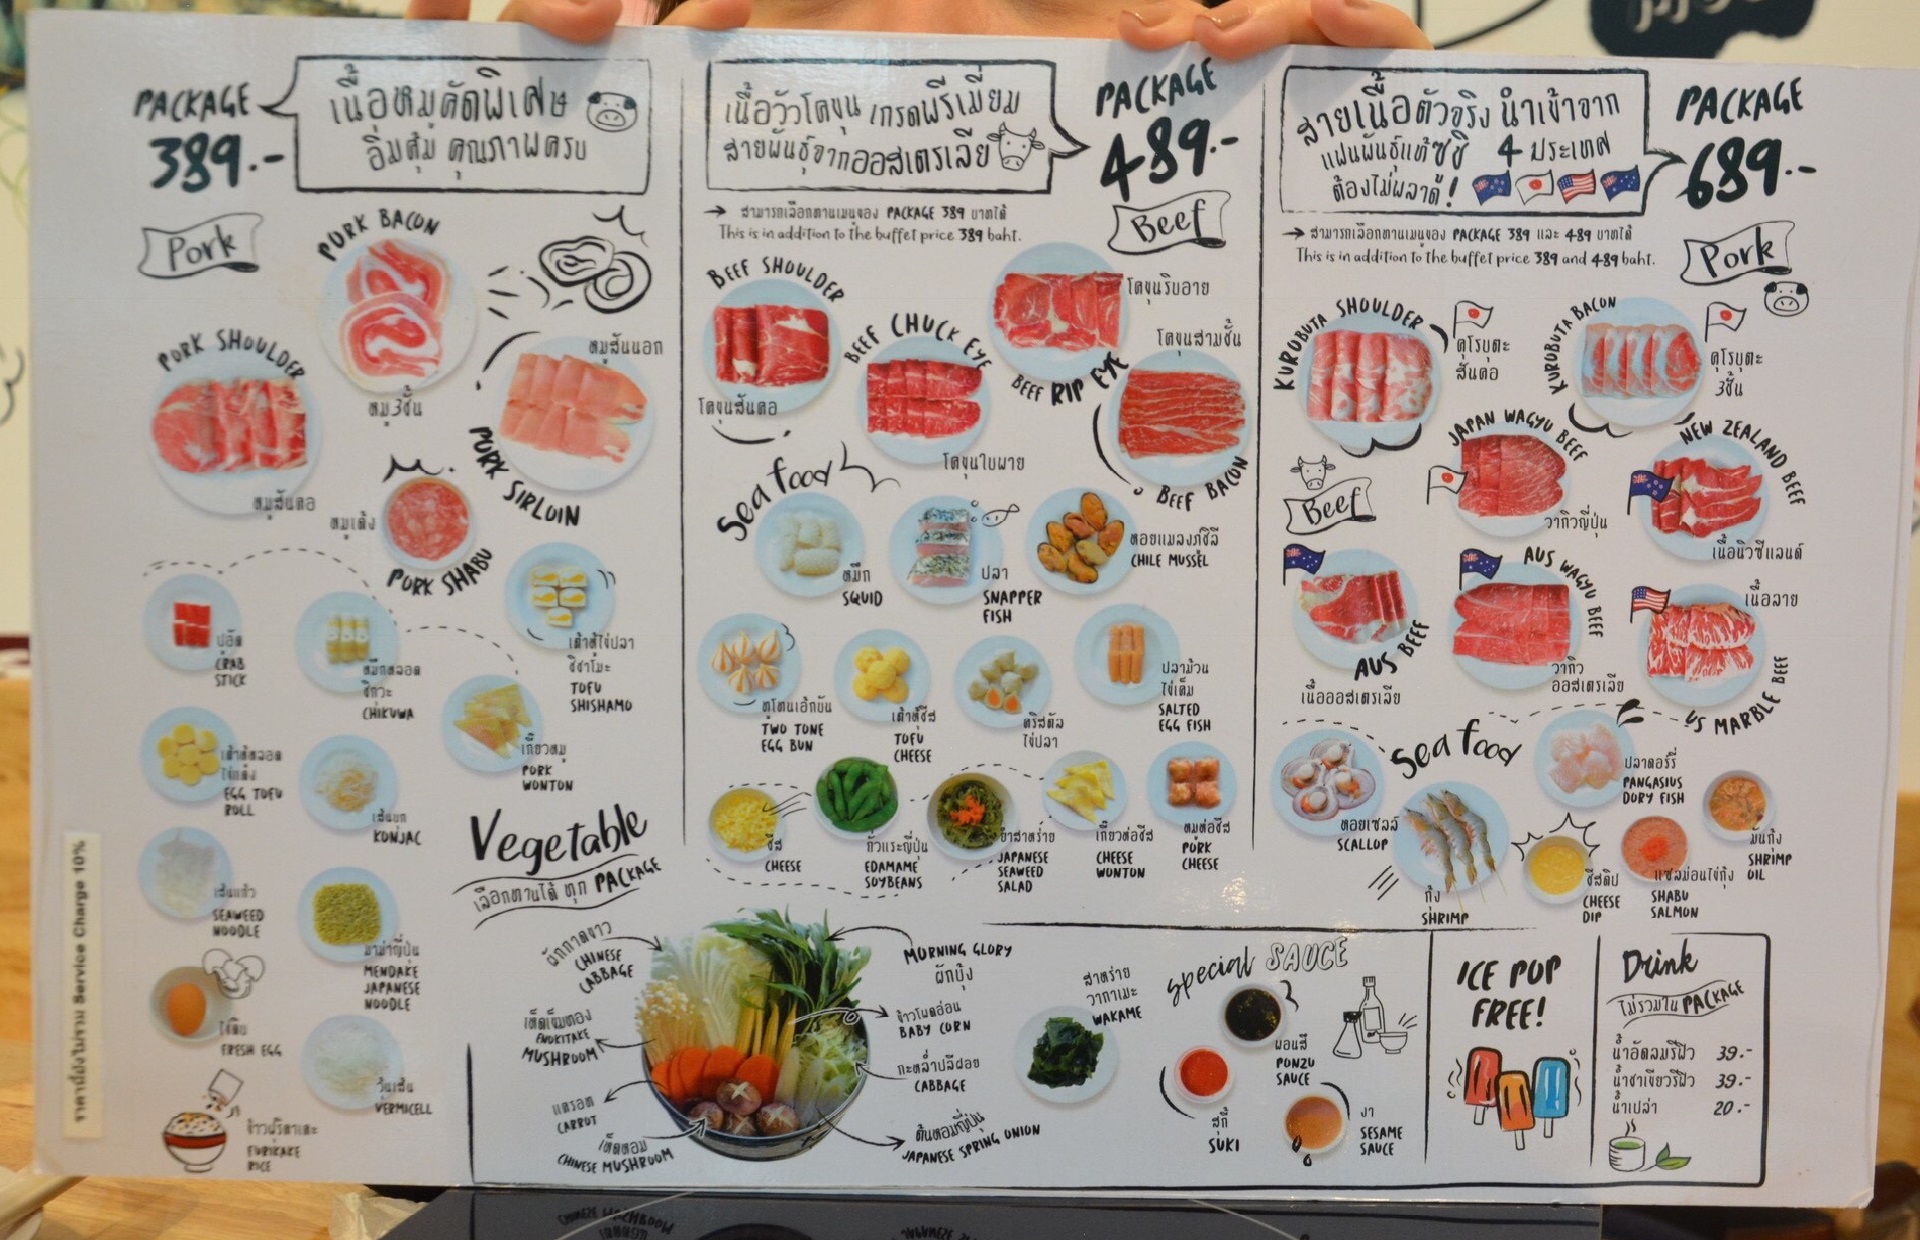 PACKAGE
389.-
เนื้อหมูคัดพิเศษ
อิ่มคุ้ม คุณภาพครบ
Pork
PORK BACON
หมู3ชั้น
PORK SHOULDER
หมูสันคอ
หมูสันนอก
PORK SIRLOIN
หมูเด้ง
PORK SHABU
ปูอัด
CRAB
STICK
หมึกหลอด
ชิกูวะ
CHIKUWA
เต้าหู้ไข่ปลา
ชิชาโมะ
TOFU
SHISHAMO
เกี๊ยวหมู
PORK
WONTON
เต้าหู้หลอด
ไข่แดง
EGG TOFU
ROLL
เส้นบุก
KONJAC
เส้นแก้ว
SEAWEED
NOODLE
มาม่าญี่ปุ่น
MENDAKE
JAPANESE
NOODLE
ไข่ดิบ
FRESH EGG
วุ้นเส้น
VERMICELL
ข้าวฟูริคาเคะ
FURIKAKE
RICE
ราคานี้ยังไม่รวม Service Charge 10%
เนื้อวัวโคขุน เกรดพรีเมี่ยม
สายพันธุ์จากออสเตรเลีย
PACKAGE
489.-
→ สามารถเลือกทานเมนูของ PACKAGE 389 บาทได้
This is in addition to the buffet price 389 baht.
Beef
BEEF SHOULDER
โคขุนสันคอ
BEEF CHUCK EYE
โคขุนใบพาย
โคขุนริบอาย
BEEF RIP EYE
โคขุนสามชั้น
BEEF BACON
Sea food
หมึก
SQUID
ปลา
SNAPPER
FISH
หอยแมลงภู่ชิลี
CHILE MUSSEL
ทูโทนเอ้กบัน
TWO TONE
EGG BUN
เต้าหู้ชีส
TOFU
CHEESE
คริสตัล
ไข่ปลา
ปลาม้วน
ไข่เค็ม
SALTED
EGG FISH
ชีส
CHEESE
ถั่วแระญี่ปุ่น
EDAMAME
SOYBEANS
ยำสาหร่าย
JAPANESE
SEAWEED
SALAD
เกี๊ยวห่อชีส
CHEESE
WONTON
หมูห่อชีส
PORK
CHEESE
สายเนื้อตัวจริง นำเข้าจาก
แฟนพันธุ์แท้ซูชิ 4 ประเทศ
ต้องไม่พลาด!
PACKAGE
689.-
→ สามารถเลือกทานเมนูของ PACKAGE 389 และ 489 บาทได้
This is in addition to the buffet price 389 and 489 baht.
Pork
KUROBUTA SHOULDER
คุโรบุตะ
สันคอ
KUROBUTA BACON
คุโรบุตะ
3ชั้น
Beef
JAPAN WAGYU BEEF
วากิวญี่ปุ่น
NEW ZEALAND BEEF
เนื้อนิวซีแลนด์
AUS BEEF
เนื้อออสเตรเลีย
AUS WAGYU BEEF
วากิว
ออสเตรเลีย
เนื้อลาย
US MARBLE BEEF
Sea food
หอยเชลล์
SCALLOP
กุ้ง
SHRIMP
ปลาดอรี่
PANGASIUS
DORY FISH
ชีสดิป
CHEESE
DIP
แซลม่อนไข่กุ้ง
SHABU
SALMON
มันกุ้ง
SHRIMP
OIL
Vegetable
เลือกทานได้ ทุก PACKAGE
ผักกาดขาว
CHINESE
CABBAGE
เห็ดเข็มทอง
ENOKITAKE
MUSHROOM
แครอท
CARROT
เห็ดหอม
CHINESE MUSHROOM
MORNING GLORY
ผักบุ้ง
ข้าวโพดอ่อน
BABY CORN
กะหล่ำปลีฝอย
CABBAGE
ต้นหอมญี่ปุ่น
JAPANESE SPRING ONION
สาหร่าย
วากาเมะ
WAKAME
special SAUCE
พอนสึ
PONZU
SAUCE
สุกี้
SUKI
งา
SESAME
SAUCE
ICE POP
FREE!
Drink
ไม่รวมใน PACKAGE
น้ำอัดลมรีฟิว 39.-
น้ำชาเขียวรีฟิว 39.-
น้ำเปล่า 20.-